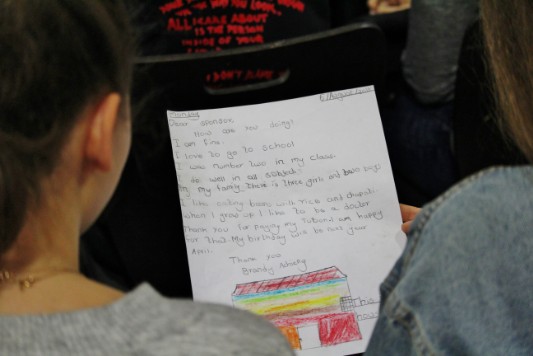 THE WAY YOU LOOK..
ALL MAKE ABOUT
IS THE PERSON
INSIDE OF YOUR
I DON'T
6 August
Monday
Dear sponsor,
How are you doing?
I am fine.
I love to go to school
I was number two in my class
do well in all subjects
In my family there is three girls and two boys
I like eating beans with rice and chapati
when I grow up I like to be a doctor
Thank you for paying my am happy
for that. My birthday will be last year
April.
Thank you
This
house